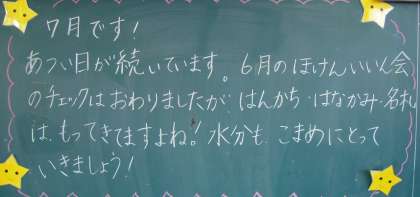 7月です!
あつい日が続いています。6月のほけんいいん会
のチェックはおわりましたが、はんかち・はながみ・名札
は、もってきてますよね!水分も、こまめにとって
いきましょう!